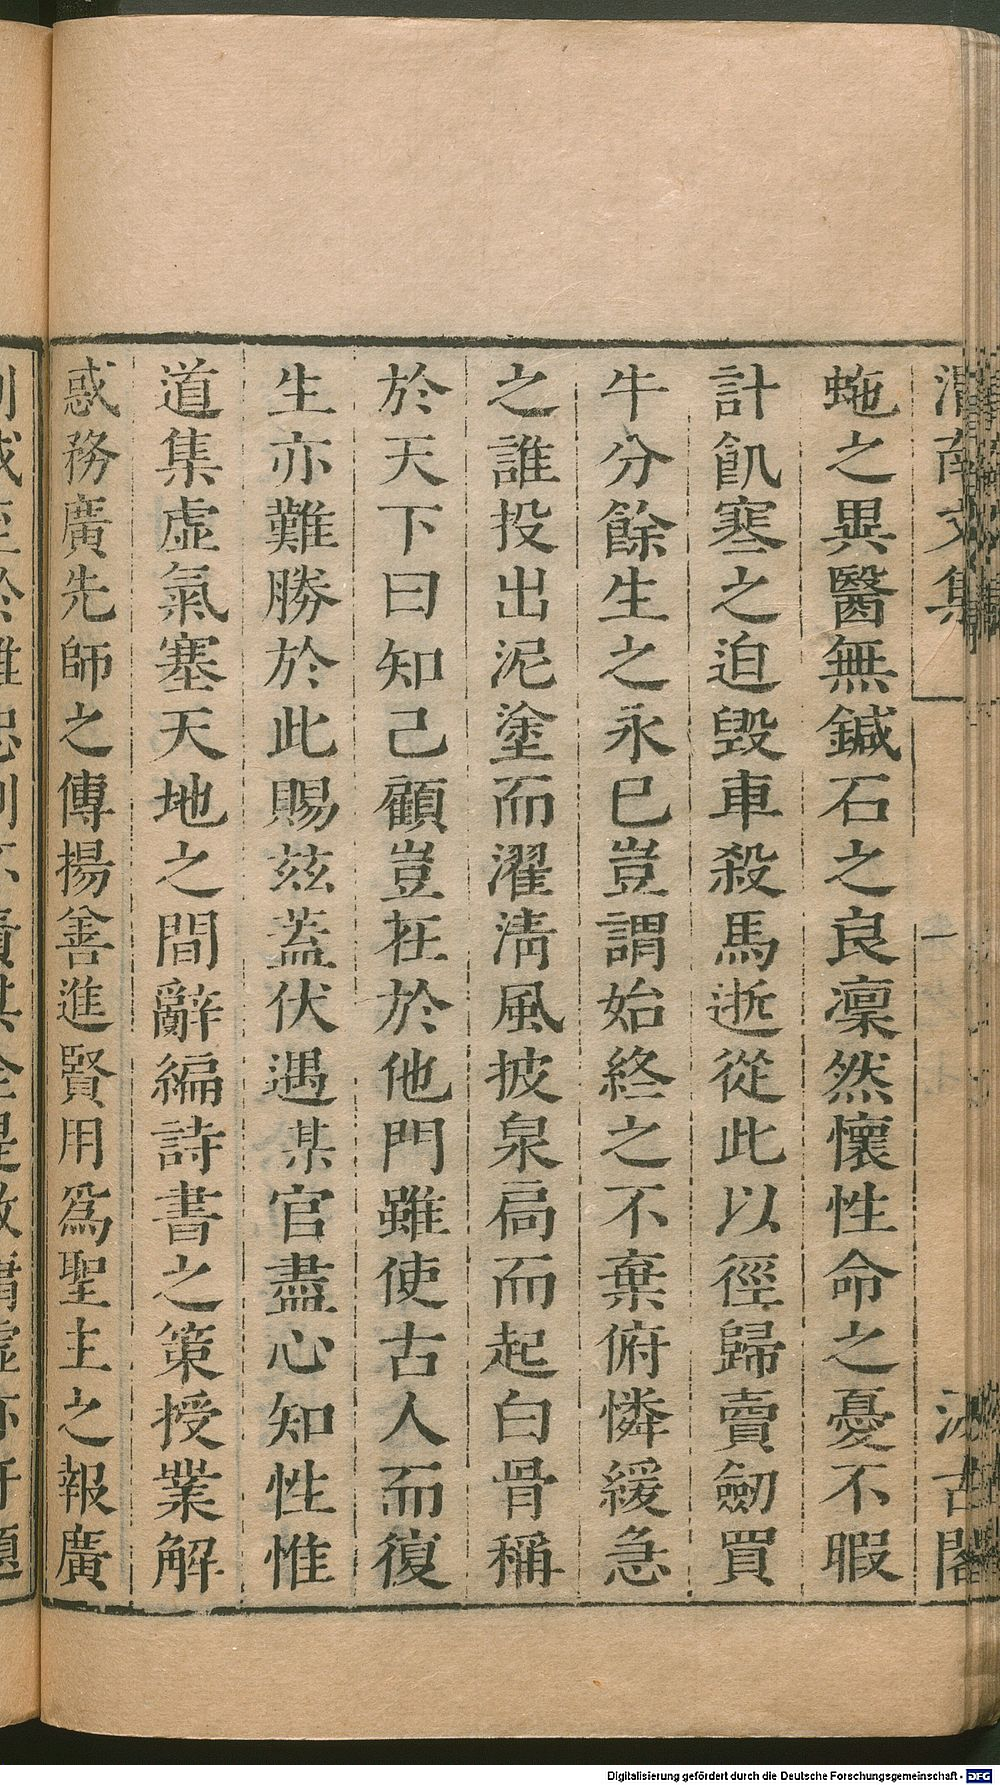 渭南文集 一 汲古閣
虵之異醫無鍼石之良凜然懷性命之憂不暇
計飢寒之迫毀車殺馬逝從此以徑歸賣劒買
牛分餘生之永已豈謂始終之不棄俯憐緩急
之誰投出泥塗而濯淸風披泉扃而起白骨稱
於天下曰知己顧豈在於他門雖使古人而復
生亦難勝於此賜玆蓋伏遇某官盡心知性惟
道集虛氣塞天地之間辭編詩書之策授業解
惑務廣先師之傳揚善進賢用爲聖主之報廣
Digitalisierung gefördert durch die Deutsche Forschungsgemeinschaft - DFG